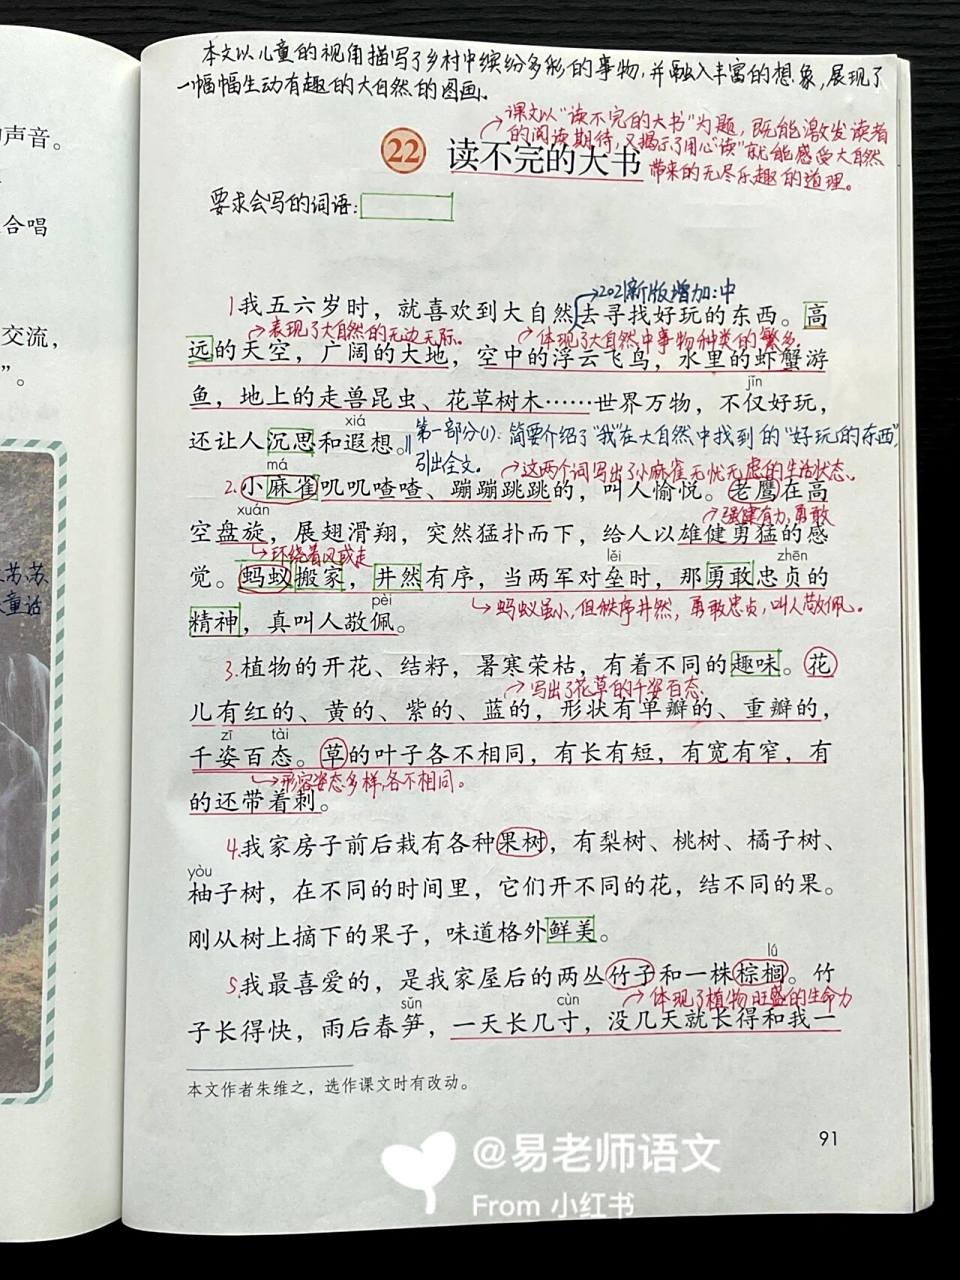 声音。
合唱
交流，
”。
苏苏
童话
本文以儿童的视角描写了乡村中缤纷多彩的事物，并融入丰富的想象，展现了
一幅幅生动有趣的大自然的图画。
课文以“读不完的大书”为题，既能激发读者
的阅读期待，又揭示了用心“读”就能感受大自然
带来的无尽乐趣的道理。
22 读不完的大书
要求会写的词语：
2021新版增加：中
1我五六岁时，就喜欢到大自然去寻找好玩的东西。高
表现了大自然的无边无际。 体现了大自然中事物种类的繁多。
远的天空，广阔的大地，空中的浮云飞鸟，水里的虾蟹游
jǐn
鱼，地上的走兽昆虫、花草树木……世界万物，不仅好玩，
xiá
还让人沉思和遐想。‖第一部分(1)：简要介绍了“我”在大自然中找到的“好玩的东西”，
引出全文。
这两个词写出了小麻雀无忧无虑的生活状态。
má
2.小麻雀叽叽喳喳、蹦蹦跳跳的，叫人愉悦。老鹰在高
强健有力，勇敢
xuán
空盘旋，展翅滑翔，突然猛扑而下，给人以雄健勇猛的感
环绕着飞或走
lěi zhēn
觉。蚂蚁搬家，井然有序，当两军对垒时，那勇敢忠贞的
pèi
蚂蚁虽小，但秩序井然，勇敢忠贞，叫人敬佩。
精神，真叫人敬佩。
3.植物的开花、结籽，暑寒荣枯，有着不同的趣味。花
写出了花草的千姿百态。
儿有红的、黄的、紫的、蓝的，形状有单瓣的、重瓣的，
zī tài
千姿百态。草的叶子各不相同，有长有短，有宽有窄，有
形容姿态多样，各不相同。
的还带着刺。
4.我家房子前后栽有各种果树，有梨树、桃树、橘子树、
yòu
柚子树，在不同的时间里，它们开不同的花，结不同的果。
刚从树上摘下的果子，味道格外鲜美。
lǘ
5.我最喜爱的，是我家屋后的两丛竹子和一株棕榈。竹
体现了植物旺盛的生命力
sǔn cùn
子长得快，雨后春笋，一天长几寸，没几天就长得和我一
本文作者朱维之，选作课文时有改动。
91
@易老师语文
From 小红书